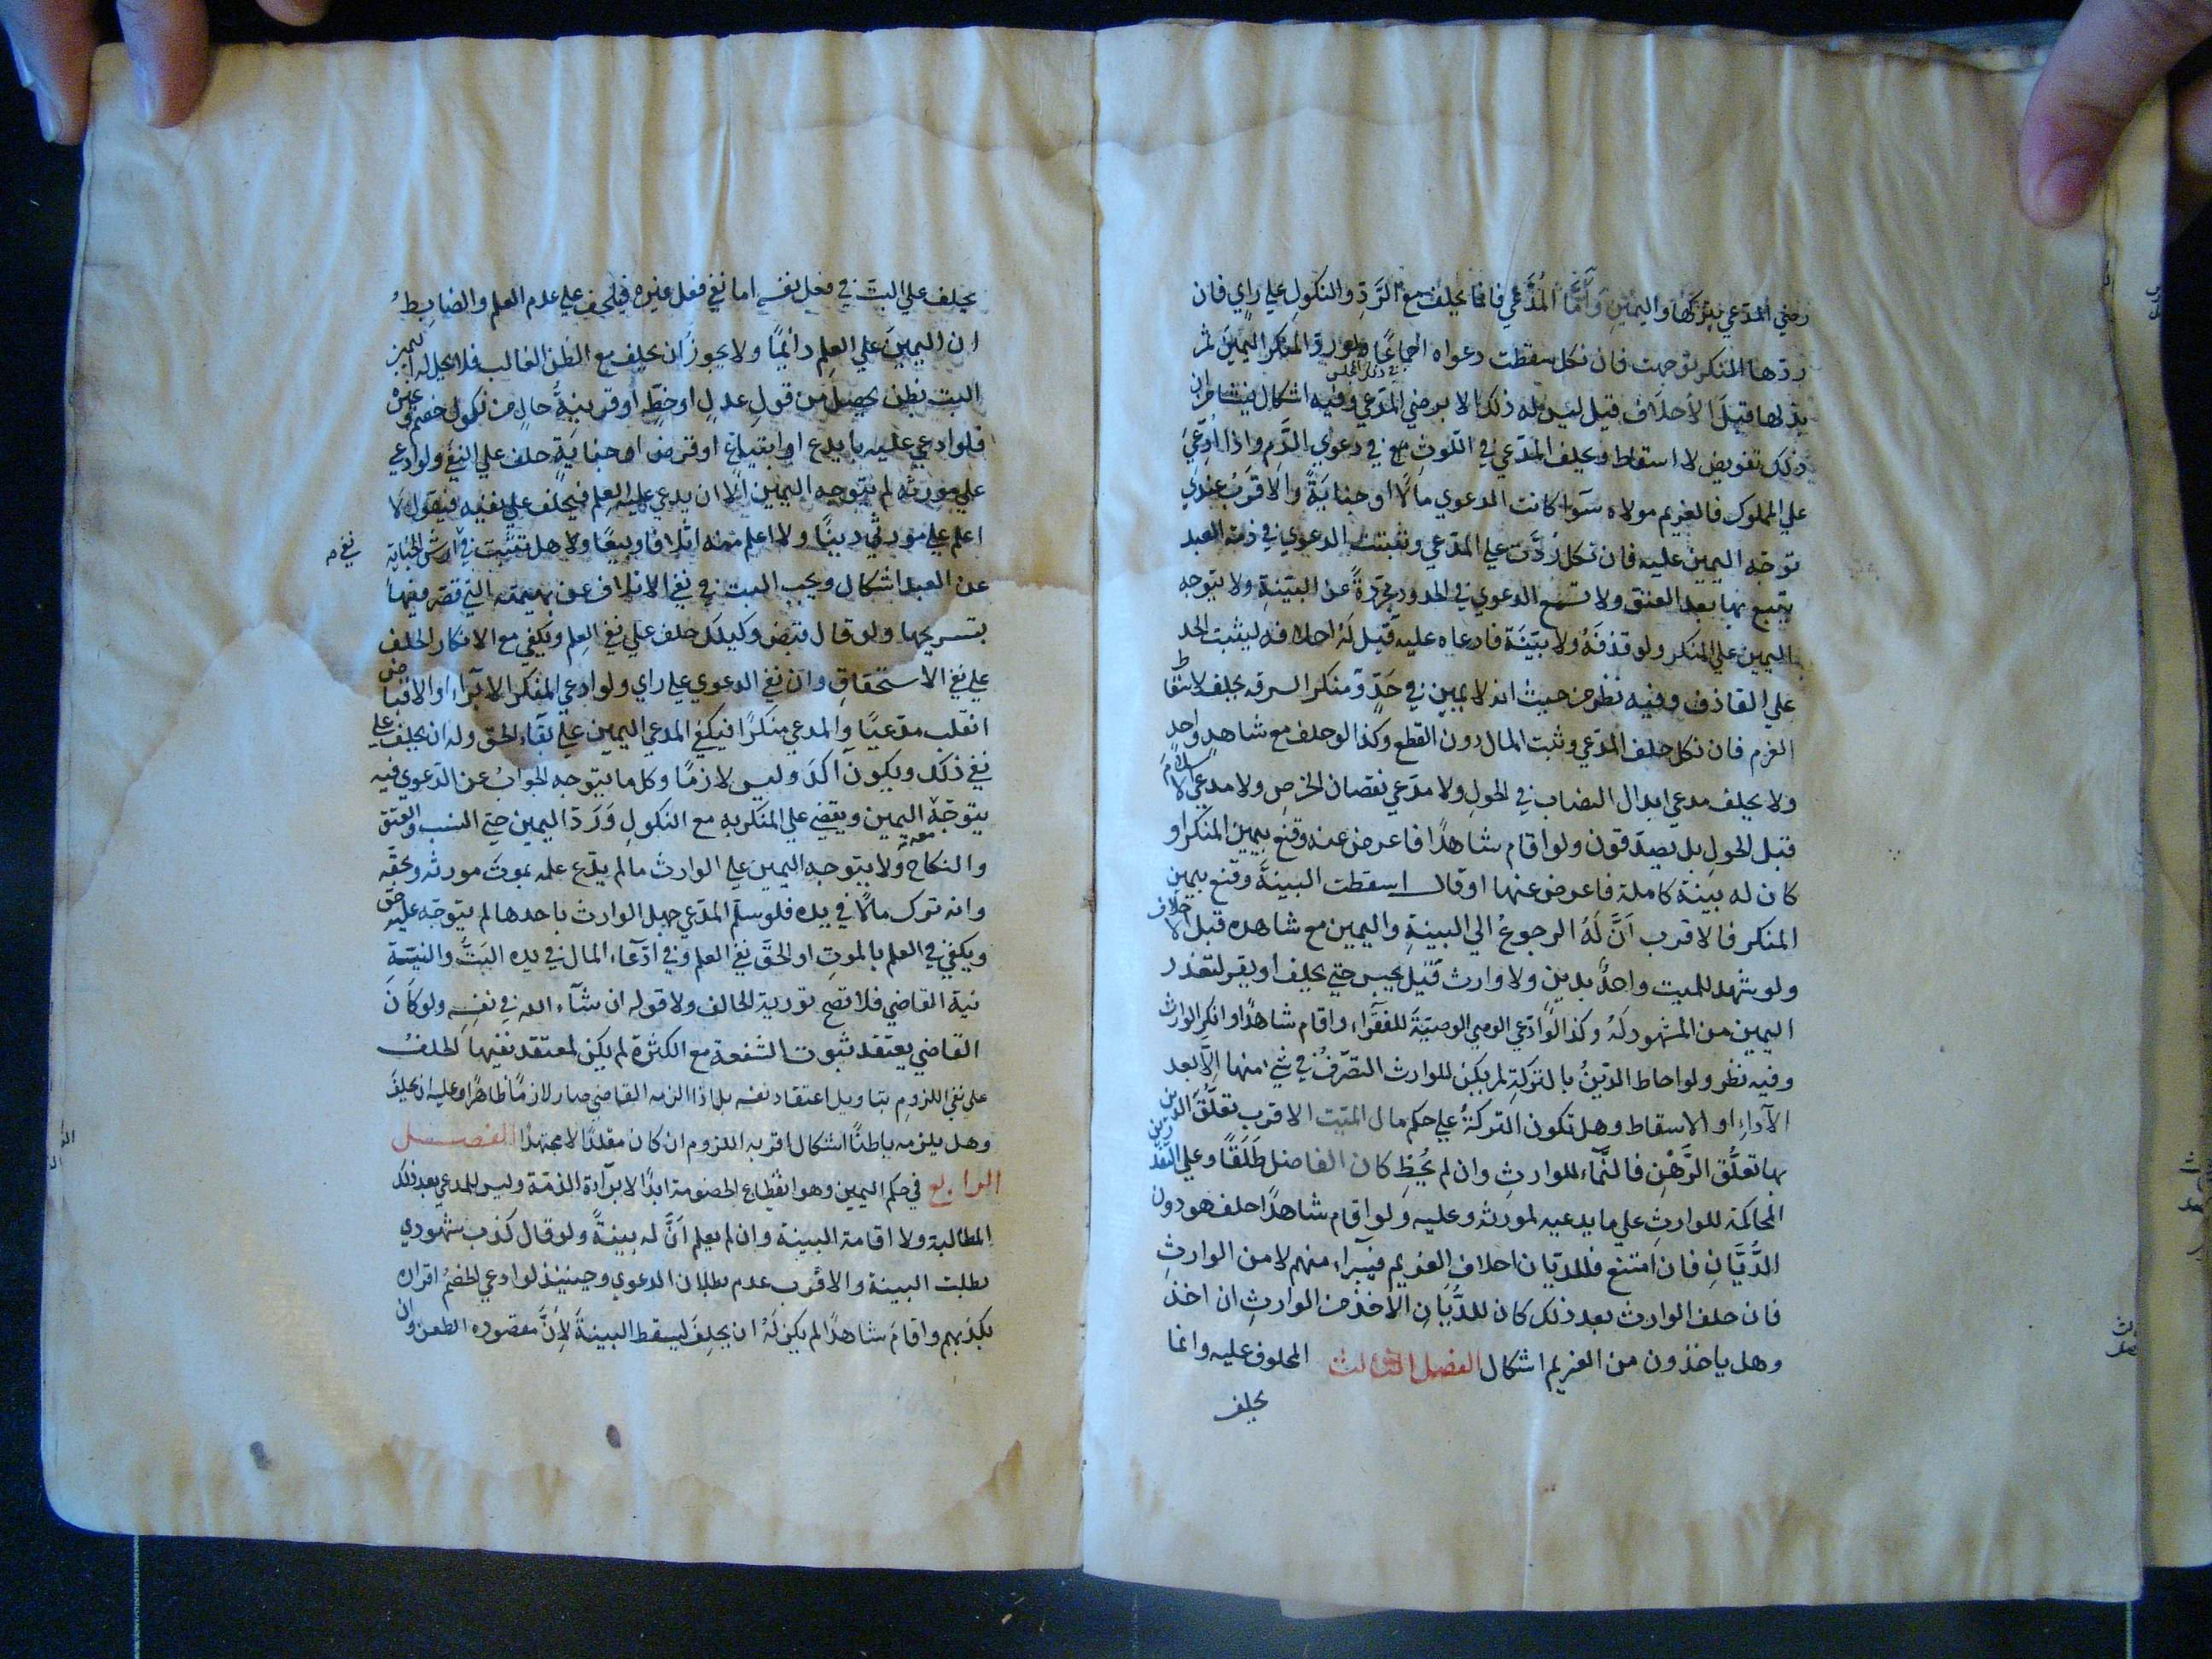 رضي المدعي بتركها واليمين وأمّا المُدَّعي فانما يحلف مع الرَّدِّ والنكولِ علي راي فان
ردّها المنكر توجهت فان نكل سقطت دعواه اجماعًا ولو ردّ المنكر اليمينَ ثمّ
في ذلك المجلس
بذلها قبلَ الأحلاف قيل ليس له ذلك الا برضي المدّعي وفيه اشكال ينشا من ان
ذلك تفويض لا اسقاط ويحلف المدّعي في اللّوثِ مع في دعوي الدَّمِ واذا ادّعيَ
علي المملوك فالغريم مولاه سَوآ كانت الدعوي مالًا او جنايَةً والاقرَبُ عندي
توجّه اليمين عليه فان نكل رُدَّت علي المدّعي وتثبت الدعوي في ذمّة العبد
يتبع بها بعد العتق ولا تسمع الدعوي في الحدود مجرّدةً عن البيّنةِ ولا يتوجه
اليمين علي المنكر ولو قذفَهُ ولا بيّنَةَ فادعاه عليه قيل لَهُ احلافه ليثبت الحد
علي القاذف وفيه نظر من حيث انه لا يمين في حَدٍّ ومنكر السرقه يحلف لاسقاط
الغرم فان نكل حلف المدّعي وثبت المال دون القطع وكذا لو حلف مع شاهدٍ واحدٍ
ولا يحلف مدعي ابدال النصاب في الحولِ ولا مدّعي نقصان الخرصِ ولا مدعي الاسلام
قبل الحولِ بل يصدّقون ولو اقام شاهدًا فاعرض عنه وقنع بيمين المنكر او
كان له بينة كاملة فاعرض عنها او قال اسقطت البينةَ وقنع بيمين
المنكر فالاقرب اَنَّ لَهُ الرجوعُ الي البينةِ واليمين مع شاهده قبل الاحلاف
ولو شهد للميت واحدٌ بدينٍ ولا وارث قيل يحبس حتي يحلف او يقر لتعذر
اليمين من المشهود لَهُ وكذا لو ادّعي الوصي الوصيّةَ للفقَرآء واقام شاهدًا وانكر الوارث
وفيه نظر ولو احاط الدّينُ بالتركةِ لم يكن للوارث التصرّفُ في شيء منها الّا بعد
الآداءِ او الاسقاط وهل تكون التركةُ علي حكم مال الميّت الاقرب تعلّقُ الدين
بها تعلُّق الرَّهْنِ فالنَّمآء للوارثِ وان لم يُحِط كان الفاضل طَلَقًا وعلي التقديرين
المحاكمة للوارثِ علي ما يدعيه لمورثه وعليه ولو اقام شاهدًا حلف هو دون
الدُّيَّانِ فان امتنع فللديّان احلاف الغريم فيبرآء منهم لا من الوارثِ
فان حلف الوارث بعد ذلك كان للدُّيَّانِ الأخذ من الوارثِ ان اخذ
وهل ياخذون من الغريم اشكال الفصل الثالث المحلوف عليه وانما
يحلف
يحلف علي البتّ في فعل نفسه اما نفي فعل غيره فيحلف علي عدم العلم والضابِطُ
ان اليمينَ علي العلم دائمًا ولا يجوز ان يحلف مع الظن الغالب فلا يحل له اليمين
البت بظن يحصل من قولِ عدلٍ او خطٍّ او قرينةِ حالٍ من نكول خصم وغيره
فلو ادعي عليه بايداع او ابتياع او قرض او جنايةٍ حلف علي النفي ولو ادعي
علي مورثه لم يتوجه اليمين الّا ان يدعي عليه العلم فيحلف علي نفيه فيقول لا
اعلم علي مورثي دينًا ولا اعلم منه اتلافًا وبيعًا ولا هل تثبت في ارش الجناية
نفي م
عن العبد اشكال ويجب البت في نفي الاتلاف عن بهيمته التي قصّر فيها
بتسريحها ولو قال قبض وكيلك حلف علي نفي العِلم ويكفي مع الانكار الحلف
علي نفي الاستحقاقِ وان نفي الدعوي علي راي ولو ادعي المنكر الابرآء او الاقباض
انقلب مدّعيًا والمدعي منكرًا فيكفي المدعي اليمين علي بقآء الحق وله ان يحلف علي
نفي ذلك ويكون آكدَ وليس لازمًا وكل ما يتوجه الجوابُ عن الدّعوي فيه
يتوجّهُ اليمين ويقضي علي المنكر به مع النكولِ وَرَدّ اليمين حتي النسب والعتق
والنكاح ولا يتوجه اليمين علي الوارث ما لم يدّع علمه بموت مورثه وبحقّه
وانه ترك مالًا في يده فلو سلّم المدّعي جهل الوارث باحدها لم يتوجّه عليه حق
ويكفي في العلم بالموتِ او الحقِّ نفي العلم وفي ادّعآء المال في يده البَتُّ والنيّة
نية القاضي فلا تصح تورية الحالف ولا قوله ان شآء الله في نفسِهِ ولو كَانَ
القاضي يعتقد ثبوت الشفعة مع الكثرة لم يكن لمعتقد نفيها الحلفُ
علي نفي اللزومِ بتاويل اعتقاد نفسه بل اذا الزمه القاضي صار لازمًا ظاهرًا وعليه ان يحلفَ
وهل يلزمه باطنًا اشكال اقربه اللزوم ان كان مقلدًا لا مجتهدًا الفصــل
الرابع في حكم اليمين وهو انقطاع الخصومة ابدًا لا برآءة الذمّة وليس للمدعي بعد ذلك
المطالبة ولا اقامة البينة وان لم يعلم اَنَّ له بينةً ولو قال كذب شهودي
بطلت البينة والاقرب عدم بطلان الدعوي وحينئذ لو ادعي الخصمُ اقراره
بكذبهم واقامَ شاهدًا لم يكن لَهُ ان يحلِفَ ليسقط البينةَ لِاَنَّ مقصوده الطعن وان